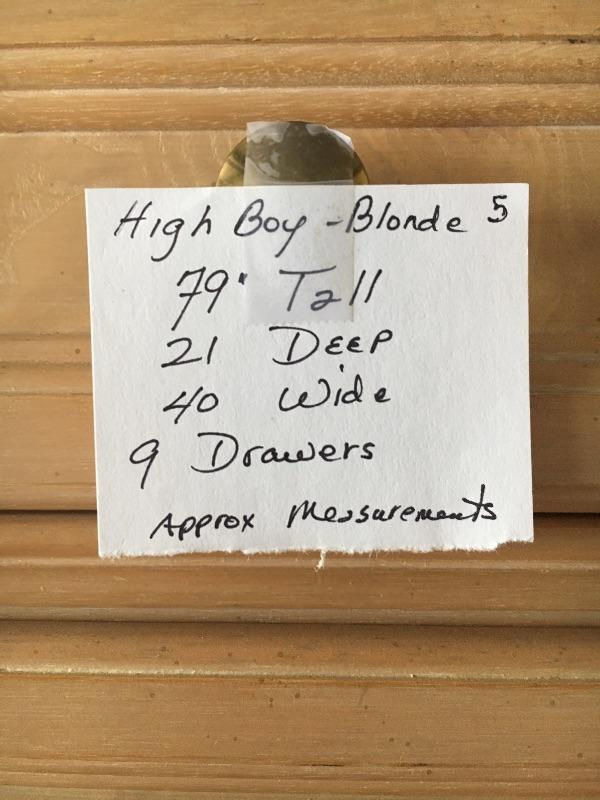 High Boy - Blonde 5
79" Tall
21 Deep
40 Wide
9 Drawers
Approx Measurements